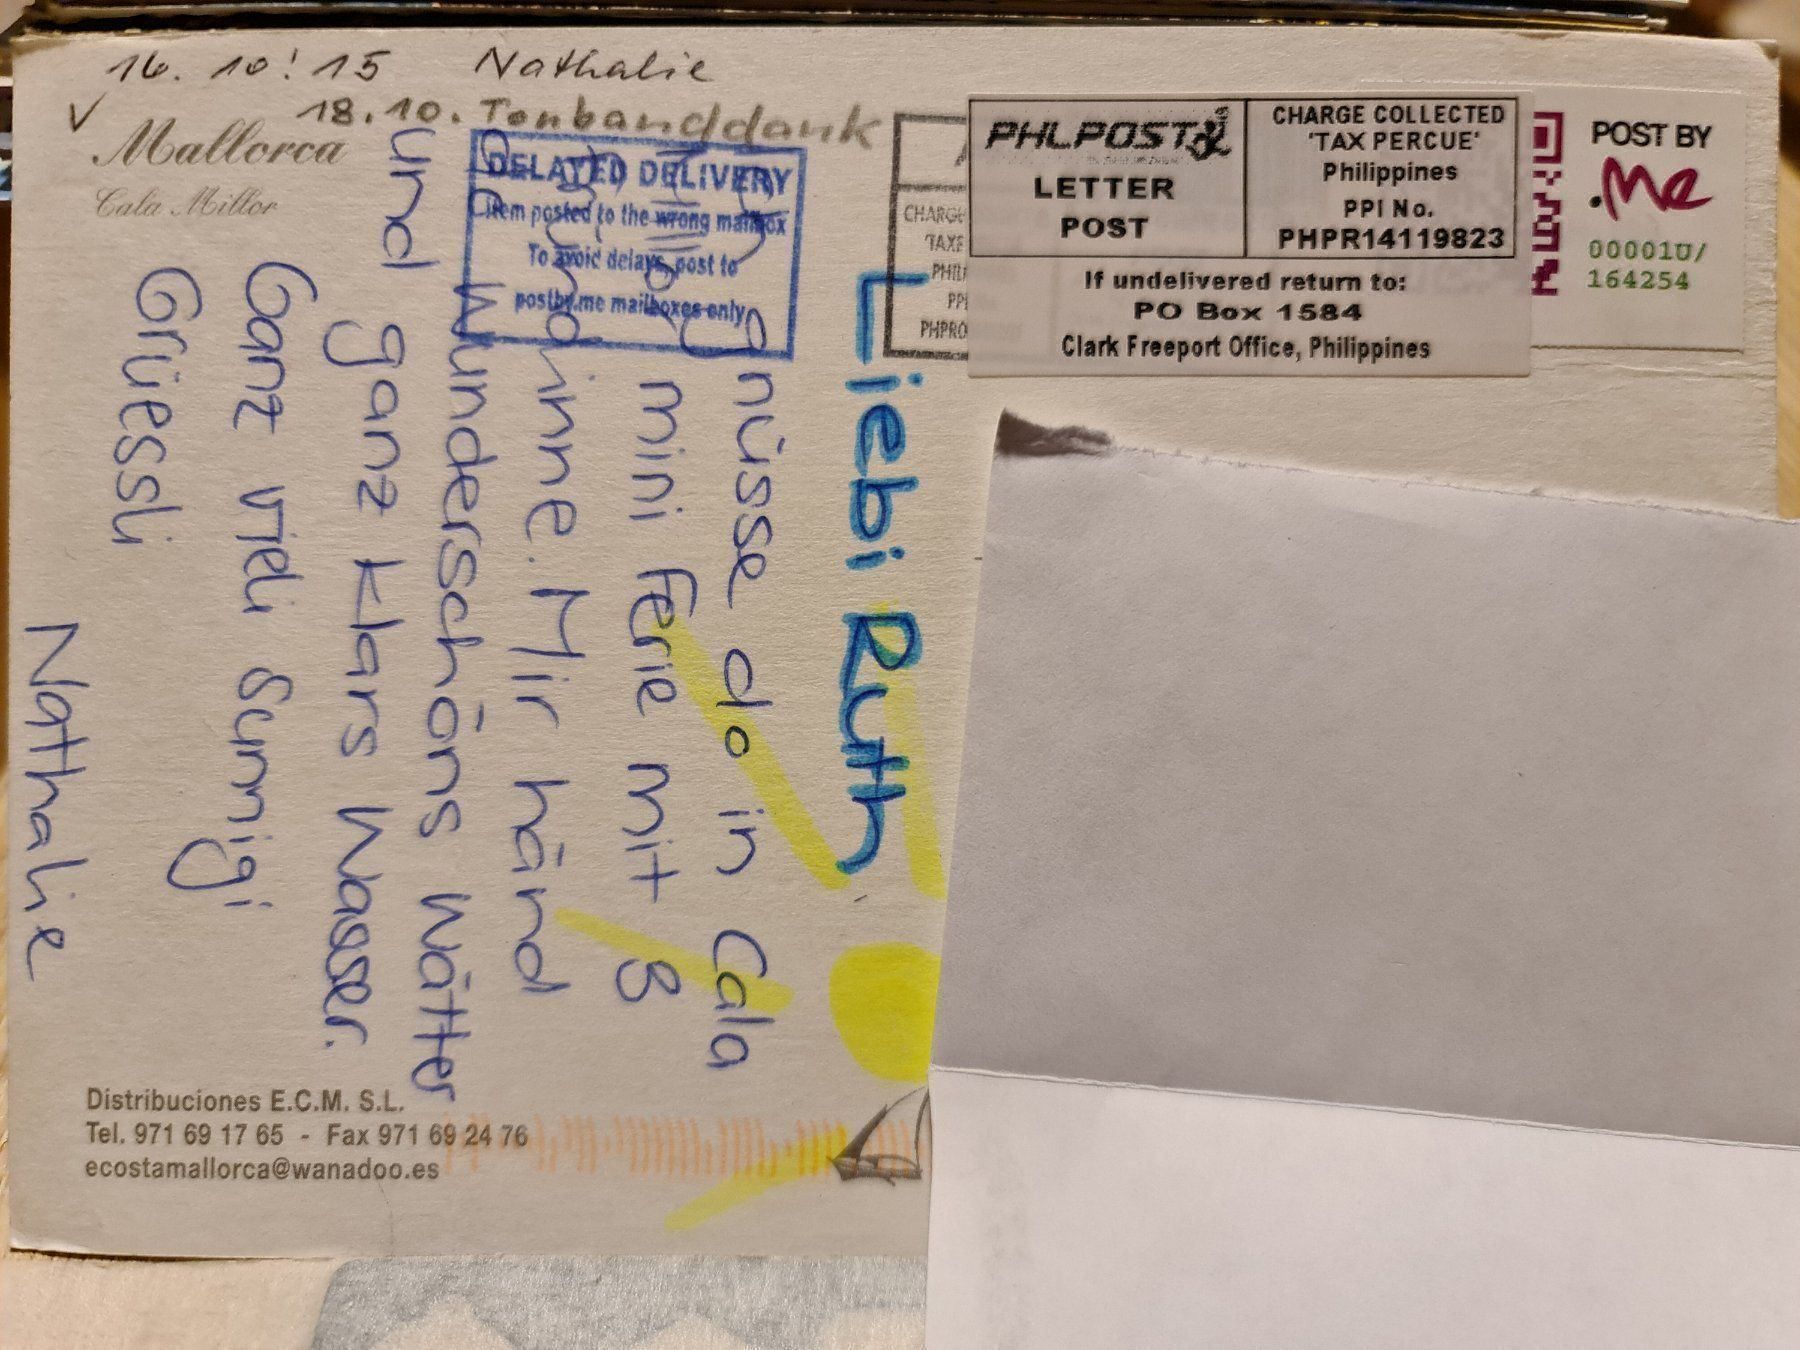 16. 10! 15 Nathalie
18.10. Tonbanddank
Mallorca
Cala Millor
DELAYED DELIVERY
Item posted to the wrong mailbox
To avoid delays, post to
postby.me mailboxes only
PHLPOST
LETTER
POST
CHARGE COLLECTED
'TAX PERCUE'
Philippines
PPI No.
PHPR14119823
If undelivered return to:
PO Box 1584
Clark Freeport Office, Philippines
POST BY
.Me
000010/
164254
Liebi Ruth
gnüsse do in Cala
mini Ferie mit 8
dinne. Mir händ
wunderschöns Wätter
und ganz klars Wasser.
Ganz vieli sunnigi
Grüessli
Nathalie
Distribuciones E.C.M. S.L.
Tel. 971 69 17 65 - Fax 971 69 24 76
ecostamallorca@wanadoo.es